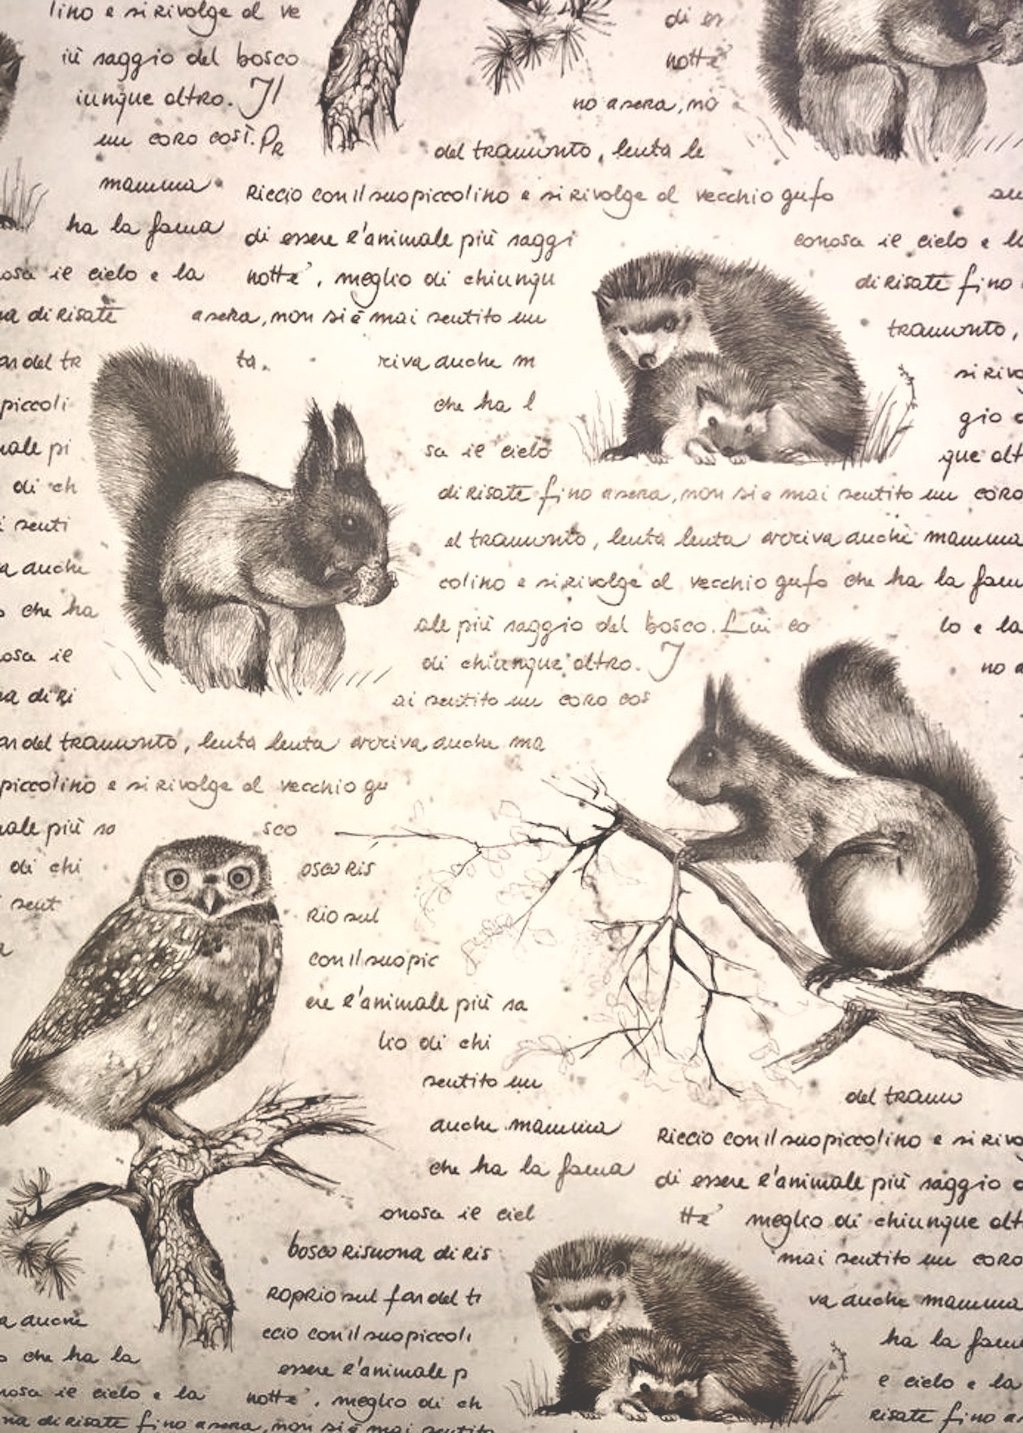 lino e si rivolge al ve
iù saggio del bosco
iunque altro. Il
un coro così. PR
mamma
ha la fama
osa il cielo e la
na di risate
an del tr
piccoli
male pi
di ch
i senti
a anche
o che ha
osa il
na di ri
di es
notte
no a sera, no
del tramonto, lenta le
Riccio con il suo piccolino e si rivolge al vecchio gufo
di essere l'animale più saggi
notte', meglio di chiunqu
a sera, non si è mai sentito un
ta.
riva anche m
che ha l
sa il cielo
conosa il cielo e l
di risate fino
tramonto,
si rivo
gio d
que alt
di risate fino a sera, non si è mai sentito un coro
el tramonto, lenta lenta arriva anche mamma
colino e si rivolge al vecchio gufo che ha la fam
ale più saggio del bosco. Lui co
lo e la
di chiunque altro. I
no a
ai sentito un coro cos
an del tramonto, lenta lenta arriva anche ma
piccolino e si rivolge al vecchio gu
male più sa
sco
di chi
osco ris
sent
rio sul
con il suo pic
ere l'animale più sa
lio di chi
sentito un
anche mamma
che ha la fama
onosa il ciel
del tramo
Riccio con il suo piccolino e si rivo
di essere l'animale più saggio d
tte'
meglio di chiunque alt
bosco risuona di ris
mai sentito un coro
roprio sul far del tr
va anche mamma
a anche
ccio con il suo piccoli
ha la fam
o che ha la
essere l'animale p
e cielo e la
nosa il cielo e la
notte', meglio di ch
risate fino a
na di risate fino a sera, non si è mai sentito un